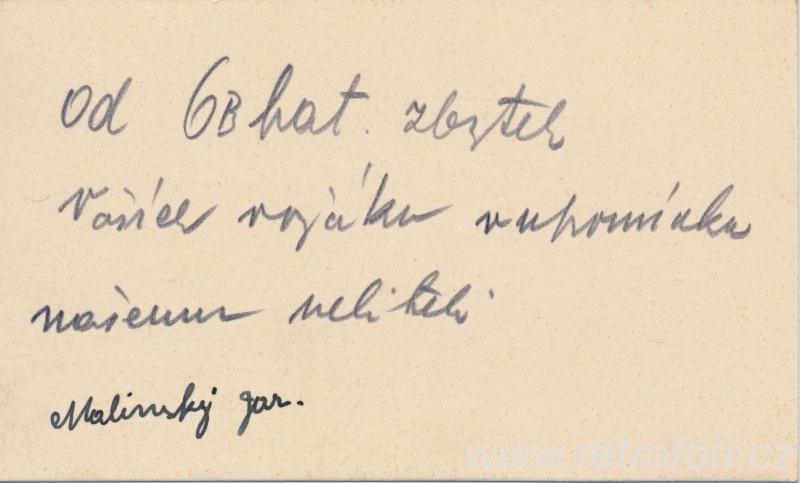 Od 6B bat. zbytek
Vašich vojáku v upomínku
našemu veliteli
Malinský Jar.
www.retrofotr.cz